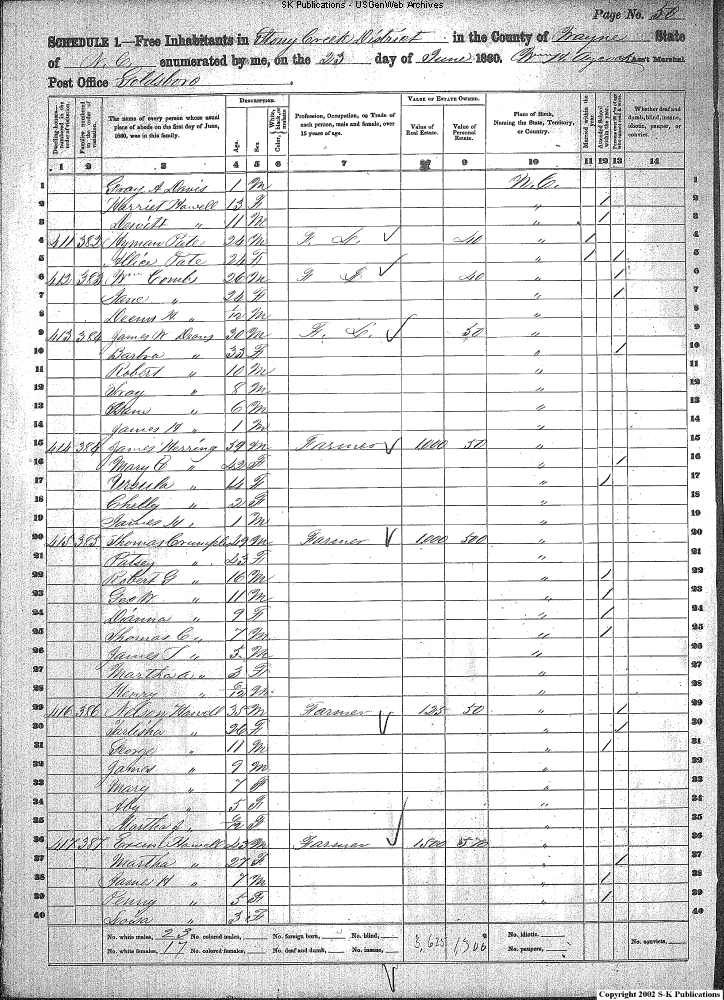 SK Publications - USGenWeb Archives
Page No. 50
SCHEDULE 1.—Free Inhabitants in Stony Creek District in the County of Wayne State
of N.C. enumerated by me, on the 23 day of June 1860. Wm H. Aycock Ass't Marshal
Post Office Goldsboro
Dwelling-houses—numbered in the order of visitation. Families numbered in the order of visitation. The name of every person whose usual place of abode on the first day of June, 1860, was in this family. DESCRIPTION. Age. Sex. Color, White, black, or mulatto. Profession, Occupation, or Trade of each person, male and female, over 15 years of age. VALUE OF ESTATE OWNED. Value of Real Estate. Value of Personal Estate. Place of Birth, Naming the State, Territory, or Country. Married within the year. Attended School within the year. Whether deaf and dumb, blind, insane, idiotic, pauper, or convict.
1 2 3 4 5 6 7 8 9 10 11 12 13 14
1 Gray A Davis 1 M N.C. 1
2 Harriet Howell 13 F " / 2
3 Dewitt " 11 M " / 3
4 411 382 Hyman Pate 24 M F. L. 40 " / 4
5 Pate 24 F " / / 5
6 412 383 Wm Combs 26 M F L 40 " / 6
7 Jane " 24 F " / 7
8 M " 8
9 413 384 James W Deans 30 M F. L. 50 " 9
10 " 33 F " / 10
11 Robert " 10 M " 11
12 Gray " 8 M " 12
13 " 6 M " 13
14 James H " 1 M " 14
15 414 384 James Herring 39 M Farmer 1000 50 " 15
16 Mary E " 42 F " / 16
17 Ursula " 14 F " / 17
18 Chelly " 2 F " 18
19 James H " 1 M " 19
20 415 385 Thomas Crumpler 29 M Farmer 1000 500 " 20
21 Patsey " 43 F " 21
22 Robert G " 16 M " / 22
23 Geo W " 11 M " / 23
24 Dianna " 9 F " / 24
25 Thomas C " 7 M " / 25
26 James T " 5 M " 26
27 Martha A " 3 F " 27
28 Henry " M " 28
29 416 386 Nelson Howell 35 M Farmer 125 50 " / 29
30 " 26 F " / 30
31 George " 11 M " / 31
32 James " 9 M " 32
33 Mary " 7 F " 33
34 " 5 F " 34
35 Martha J " F " 35
36 417 387 Howell 43 M Farmer 1500 570 " 36
37 Martha " 27 F " / 37
38 James H " 7 M " / 38
39 Penny " 5 F " / 39
40 " 3 F " 40
No. white males, 23 No. colored males, No. foreign born, No. blind, 3,625 No. idiotic.
No. white females, 17 No. colored females, No. deaf and dumb, No. insane, No. paupers, No. convicts,
Copyright 2002 S-K Publications